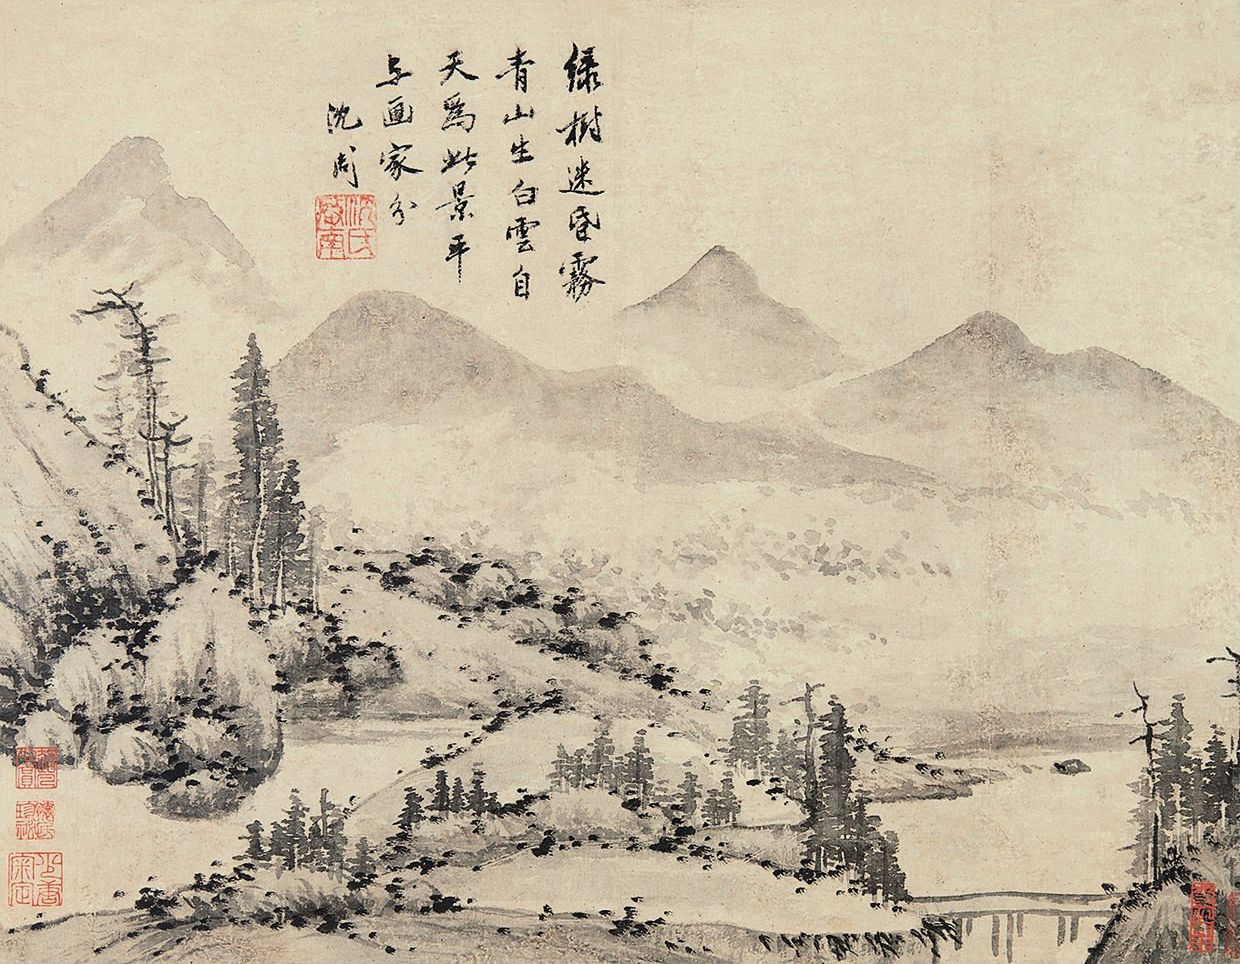 绿樹迷昏霧
青山生白雲自
天爲此景平
与画家分
沈周